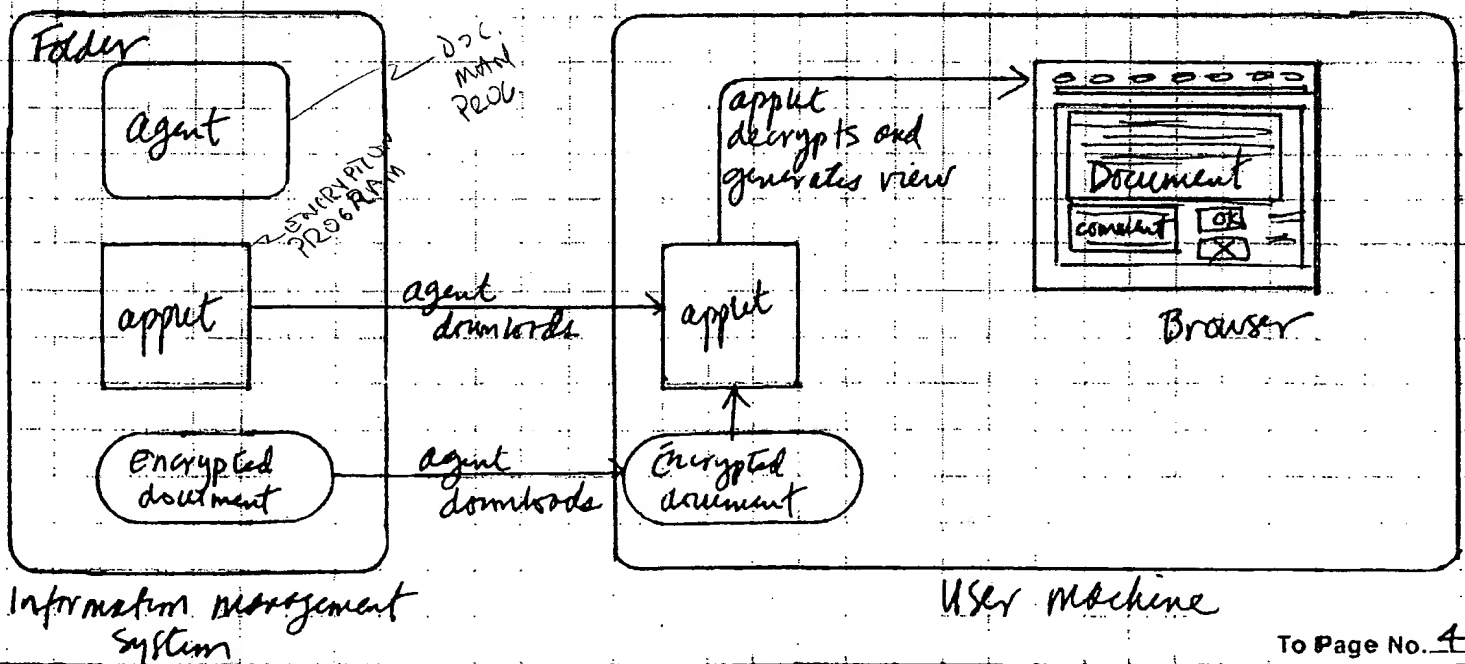 Folder
agent
DOC.
MAN
PROG.
ENCRYPTION
PROGRAM
applet
agent
downloads
Encrypted
document
agent
downloads
Information management
System
applet
decrypts and
generates view
applet
Encrypted
document
Document
comment
OK
X
Browser
User machine
To Page No. 4